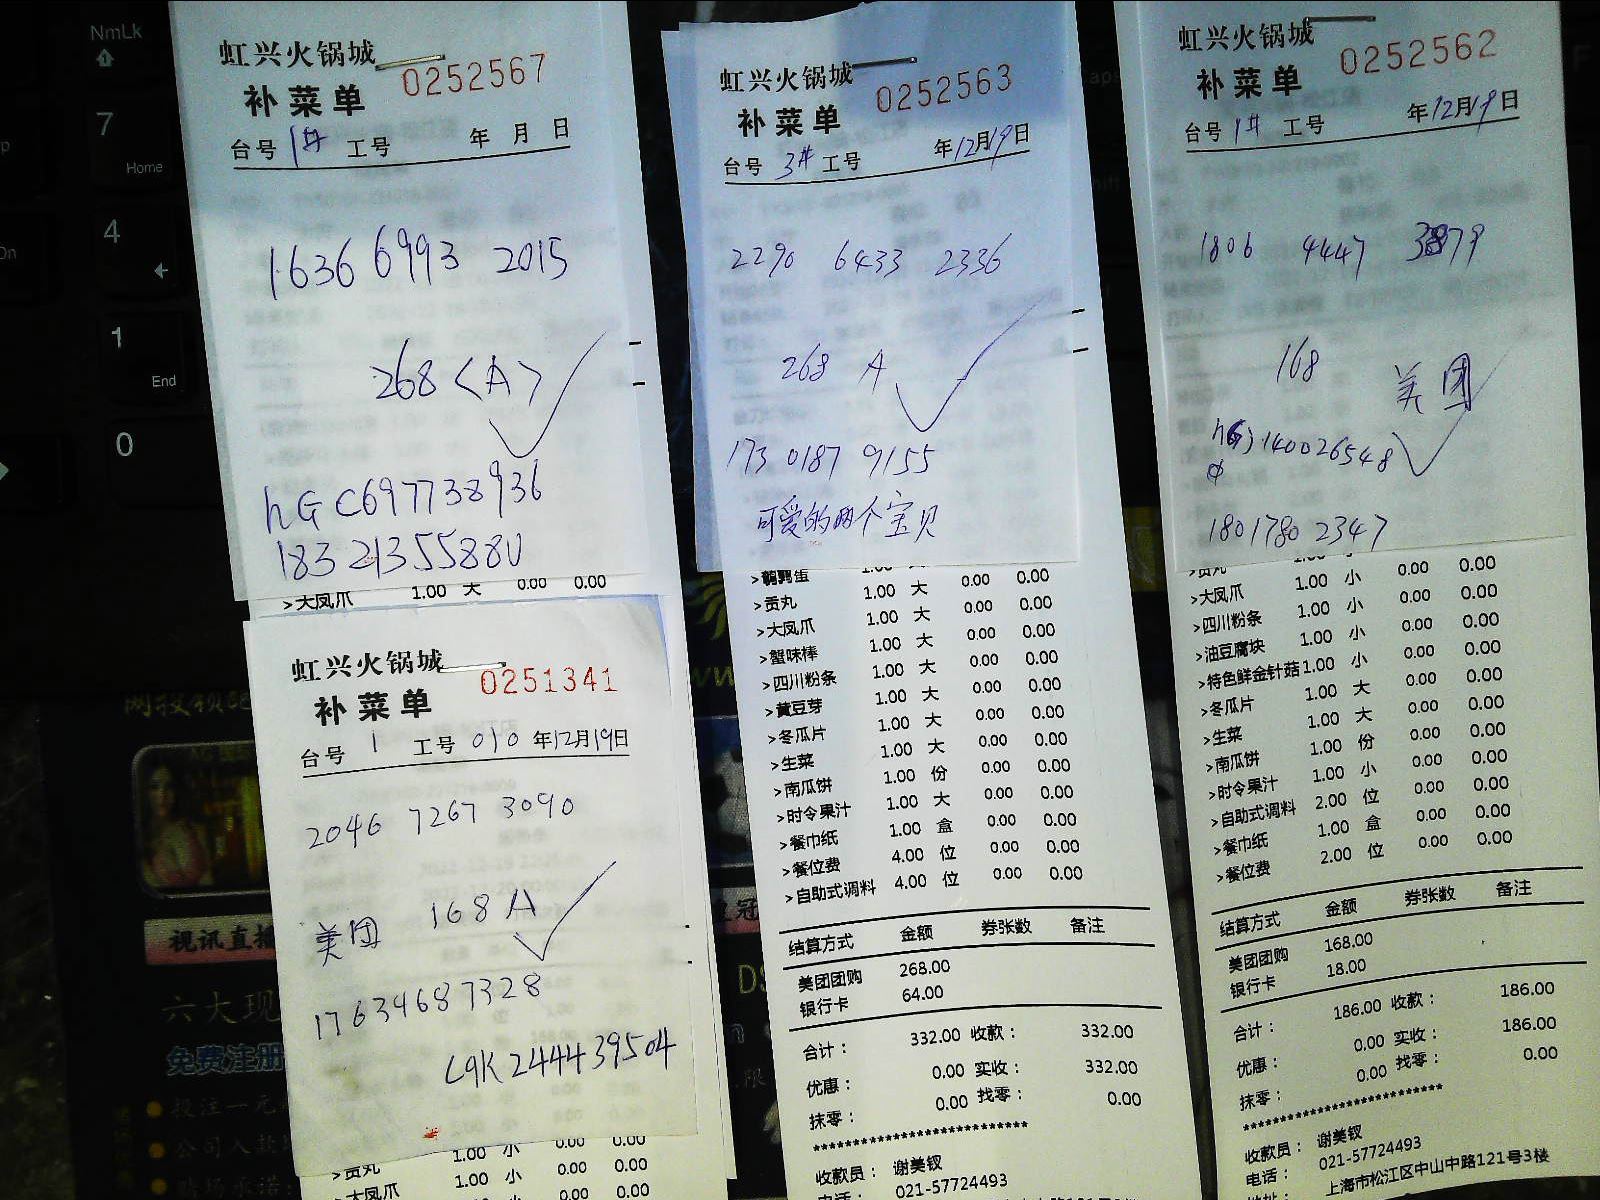 虹兴火锅城
补菜单 0252567
台号 1# 工号 年 月 日
1636 6993 2015
268 <A>
hGC697738936
18321355880
>大凤爪 1.00 大 0.00 0.00
虹兴火锅城
补菜单 0251341
台号 1 工号 010 年12月19日
2046 7267 3090
美团 168 A
17634687328
L9K244439504
1.00 小 0.00 0.00
>贡丸 1.00 小 0.00 0.00
>大凤爪 1.00 小 0.00 0.00
虹兴火锅城
补菜单 0252563
台号 3# 工号 年12月19日
2290 6433 2336
268 A
173 0187 9155
可爱的两个宝贝
>鹌鹑蛋 1.00 大 0.00 0.00
>贡丸 1.00 大 0.00 0.00
>大凤爪 1.00 大 0.00 0.00
>蟹味棒 1.00 大 0.00 0.00
>四川粉条 1.00 大 0.00 0.00
>黄豆芽 1.00 大 0.00 0.00
>冬瓜片 1.00 大 0.00 0.00
>生菜 1.00 大 0.00 0.00
>南瓜饼 1.00 份 0.00 0.00
>时令果汁 1.00 大 0.00 0.00
>餐巾纸 1.00 盒 0.00 0.00
>餐位费 4.00 位 0.00 0.00
>自助式调料 4.00 位 0.00 0.00
结算方式 金额 券张数 备注
美团团购 268.00
银行卡 64.00
合计： 332.00 收款： 332.00
优惠： 0.00 实收： 332.00
抹零： 0.00 找零： 0.00
收款员： 谢美钗
电话： 021-57724493
虹兴火锅城
补菜单 0252562
台号 1# 工号 年12月19日
1806 4447 3879
168 美团
140026548
1801780 2347
>贡丸
>大凤爪 1.00 小 0.00 0.00
>四川粉条 1.00 小 0.00 0.00
>油豆腐块 1.00 小 0.00 0.00
>特色鲜金针菇 1.00 小 0.00 0.00
>冬瓜片 1.00 大 0.00 0.00
>生菜 1.00 大 0.00 0.00
>南瓜饼 1.00 份 0.00 0.00
>时令果汁 1.00 小 0.00 0.00
>自助式调料 2.00 位 0.00 0.00
>餐巾纸 1.00 盒 0.00 0.00
>餐位费 2.00 位 0.00 0.00
结算方式 金额 券张数 备注
美团团购 168.00
银行卡 18.00
合计： 186.00 收款： 186.00
优惠： 0.00 实收： 186.00
抹零： 0.00 找零： 0.00
收款员： 谢美钗
电话： 021-57724493
地址： 上海市松江区中山中路121号3楼
NmLk
7
Home
4
1
End
0
视讯直播
六大现
免费注册
投注一元
公司入款